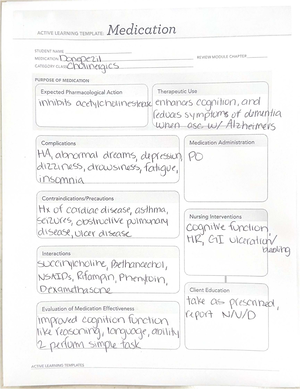 ACTIVE LEARNING TEMPLATE: Medication
STUDENT NAME
MEDICATION Donepezil
REVIEW MODULE CHAPTER
CATEGORY CLASS Cholinergics
PURPOSE OF MEDICATION
Expected Pharmacological Action
inhibits acetylcholinesterase
Therapeutic Use
enhances cognition, and
reduces symptoms of dementia
when use w/ Alzheimers
Complications
HA, abnormal dreams, depression,
dizziness, drowsiness, fatigue,
insomnia
Medication Administration
PO
Contraindications/Precautions
Hx of cardiac disease, asthma,
seizures, obstructive pulmonary
disease, ulcer disease
Nursing Interventions
cognitive function,
HR, GI ulceration/
bleeding
Interactions
succinylcholine, Bethanechol,
NSAIDs, Rifampin, Phenytoin,
Dexamethasone
Client Education
take as prescribed,
report N/V/D
Evaluation of Medication Effectiveness
improved cognition function
like reasoning, language, ability
2 perform simple task
ACTIVE LEARNING TEMPLATES